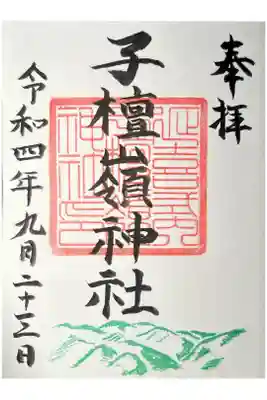 奉拝
子檀嶺神社
令和四年九月二十三日